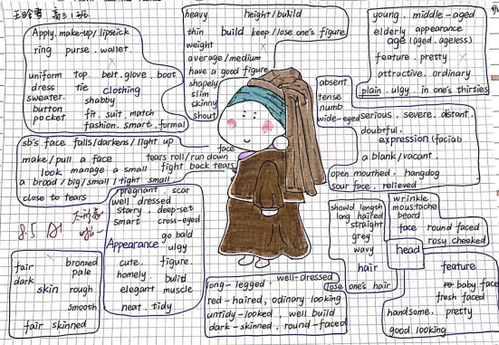 高三1班
Apply. make-up / lipsick
ring purse. wallet.
uniform top belt. glove. boot
dress tie clothing
sweater. shabby
button fit. suit. match
pocket fashion. smart. formal
heavy height/build
thin build keep/lose one's figure
weight
average/medium
have a good figure
shapely
slim
skinny
stout
young. middle-aged
elderly appearance
age (aged. ageless)
feature. pretty
attractive. ordinary
plain. ulgy. in one's thirties
absent
tense
numb
wide-eyed
serious. severe. distant.
doubtful.
expression (faciab
a blank/vacant.
open mouthed. hangdog
sour face. relieved
sb's face falls/darkens/light up
face
make/pull a face tears roll/run down
look manage a small fight back tears
a broad/big/small/tight small
close to tears
8.5
pregnant. scar
well dressed
starry. deep-set
smart cross-eyed
go bald
Appearance ulgy
cute. figure
homely build
elegant muscle
neat. tidy
fair bronzed
dark pale
skin rough
smooth
fair skinned
long-legged. well-dressed
red-haired, odinary looking
untidy-looked, well build
dark-skinned, round-faced
should length
long haired
straight
grey
wavy
hair
lose one's hair
wrinkle
moustache
beard
face round faced
rosy cheeked
head
feature
baby face
fresh faced
handsome. pretty
good looking